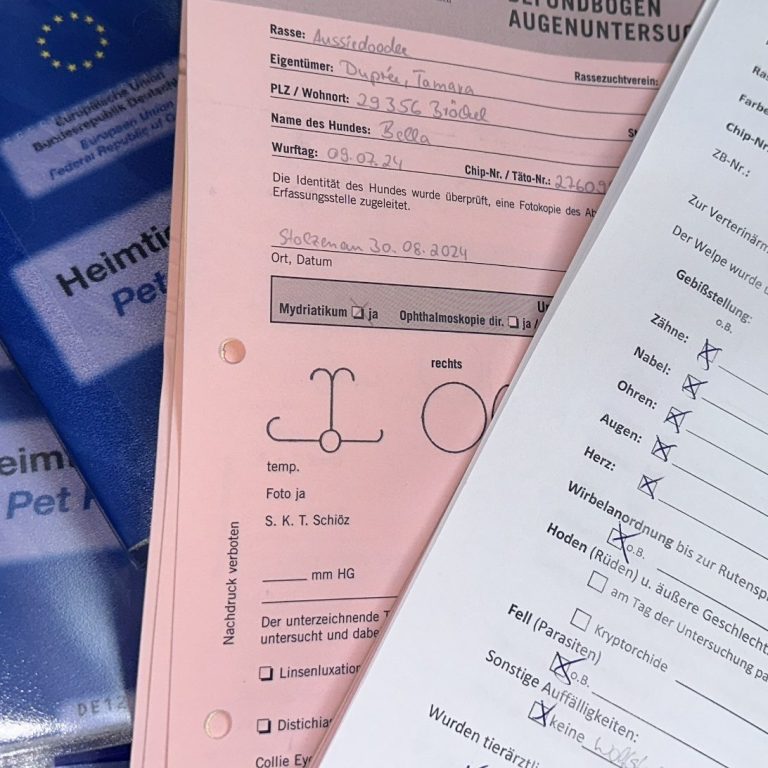 Europäische Union
Bundesrepublik Deutsch
European Union
Federal Republic of G
Heimti
Pet
eim
Pet
DE12
BEFUNDBOGEN
AUGENUNTERSUC
Rasse: Aussiedoodle
Rassezuchtverein:
Eigentümer: Duprée, Tamara
PLZ / Wohnort: 29356 Bröckel
Name des Hundes: Bella
Wurftag: 09.07.24
Chip-Nr. / Täto-Nr.: 27609
Die Identität des Hundes wurde überprüft, eine Fotokopie des Ab
Erfassungsstelle zugeleitet.
Stolzenau 30.08.2024
Ort, Datum
Un
Mydriatikum ja Ophthalmoskopie dir. ja /
rechts
temp.
Foto ja
S. K. T. Schiöz
mm HG
Nachdruck verboten
Der unterzeichnende T
untersucht und dabe
Linsenluxation
Distichia
Collie Eye
Ra
Farbe
Chip-Nr
ZB-Nr.:
Zur Verterinärm
Der Welpe wurde
Gebißstellung:
o.B.
Zähne:
Nabel:
Ohren:
Augen:
Herz:
Wirbelanordnung bis zur Rutensp
o.B.
Hoden (Rüden) u. äußere Geschlecht
am Tag der Untersuchung pa
Kryptorchide
Fell (Parasiten)
o.B.
Sonstige Auffälligkeiten:
keine
Wurden tierärztli